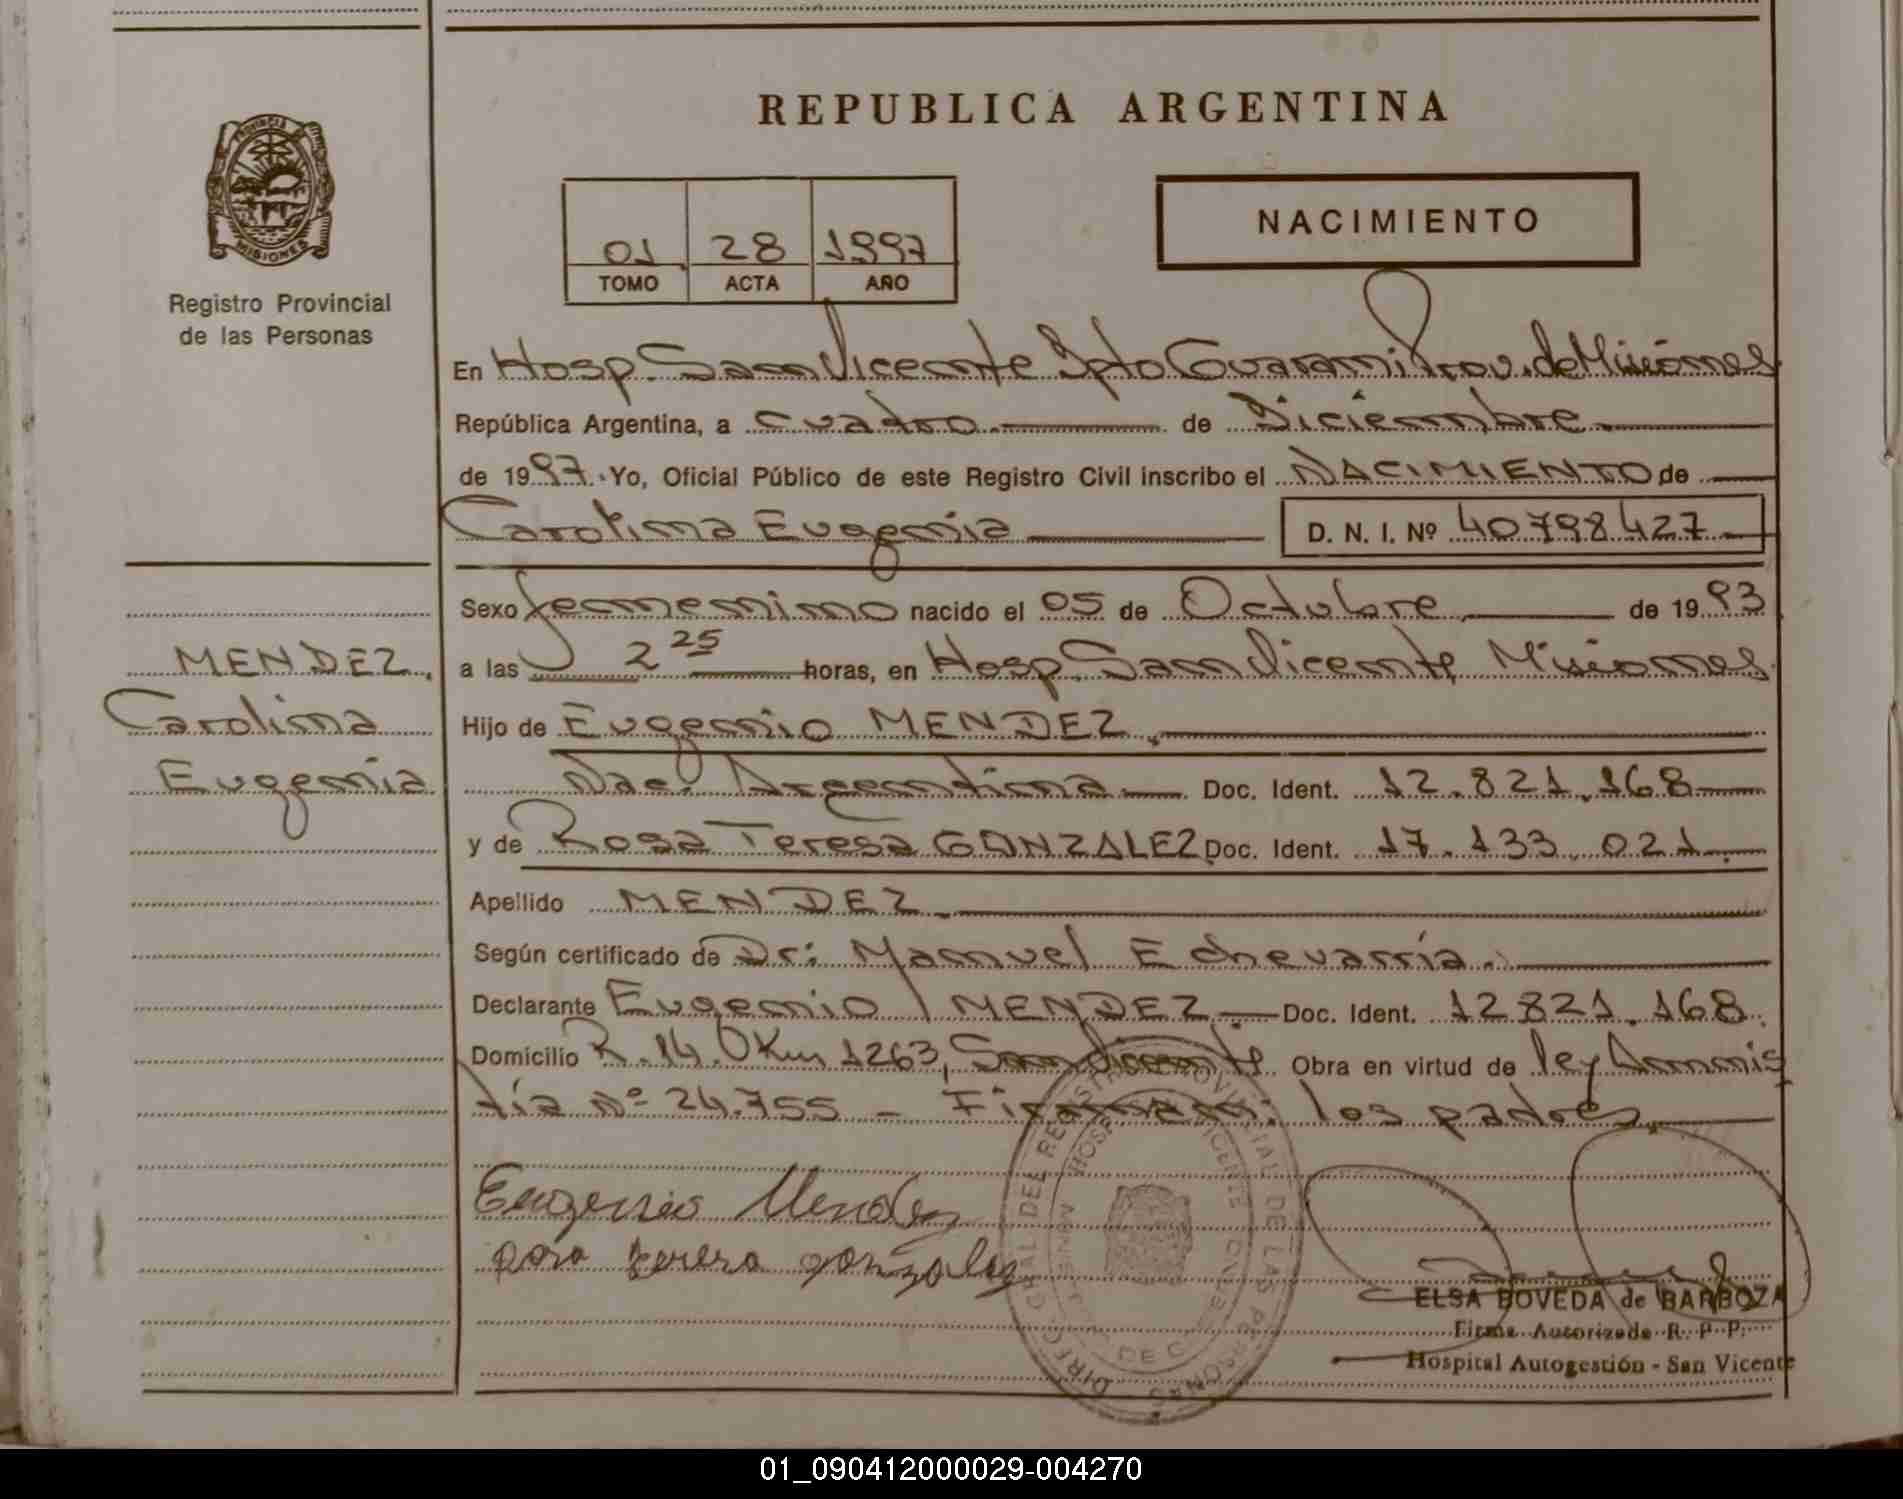 PROVINCIA
MISIONES
Registro Provincial
de las Personas
REPUBLICA ARGENTINA
01 28 1997
TOMO ACTA AÑO
NACIMIENTO
En Hosp. San Vicente Dpto Guarani Prov. de Misiones
República Argentina, a cuatro de Diciembre
de 1997. Yo, Oficial Público de este Registro Civil inscribo el NACIMIENTO de
Carolina Eugenia D. N. I. Nº 40798427
Sexo femenino nacido el 05 de Octubre de 1993
a las 2 25 horas, en Hosp. San Vicente Misiones
Hijo de Eugenio MENDEZ
Nac. Argentina Doc. Ident. 12.821.168
y de Rosa Teresa GONZALEZ Doc. Ident. 17.133.021
Apellido MENDEZ
Según certificado de Dr: Manuel Echevarría
Declarante Eugenio MENDEZ Doc. Ident. 12 821.168
Domicilio R.14. Km 1263, San Vicente Obra en virtud de ley Amnis
tía Nº 24.755 - Firman: los padres
MENDEZ,
Carolina
Eugenia
Eugenio Mendez
rosa teresa gonzalez
DIREC. GRAL DEL REGISTRO PROVINCIAL DE LAS PERSONAS
ELSA BOVEDA de BARBOZA
Firma Autorizada R. P. P.
Hospital Autogestión - San Vicente
01_090412000029-004270